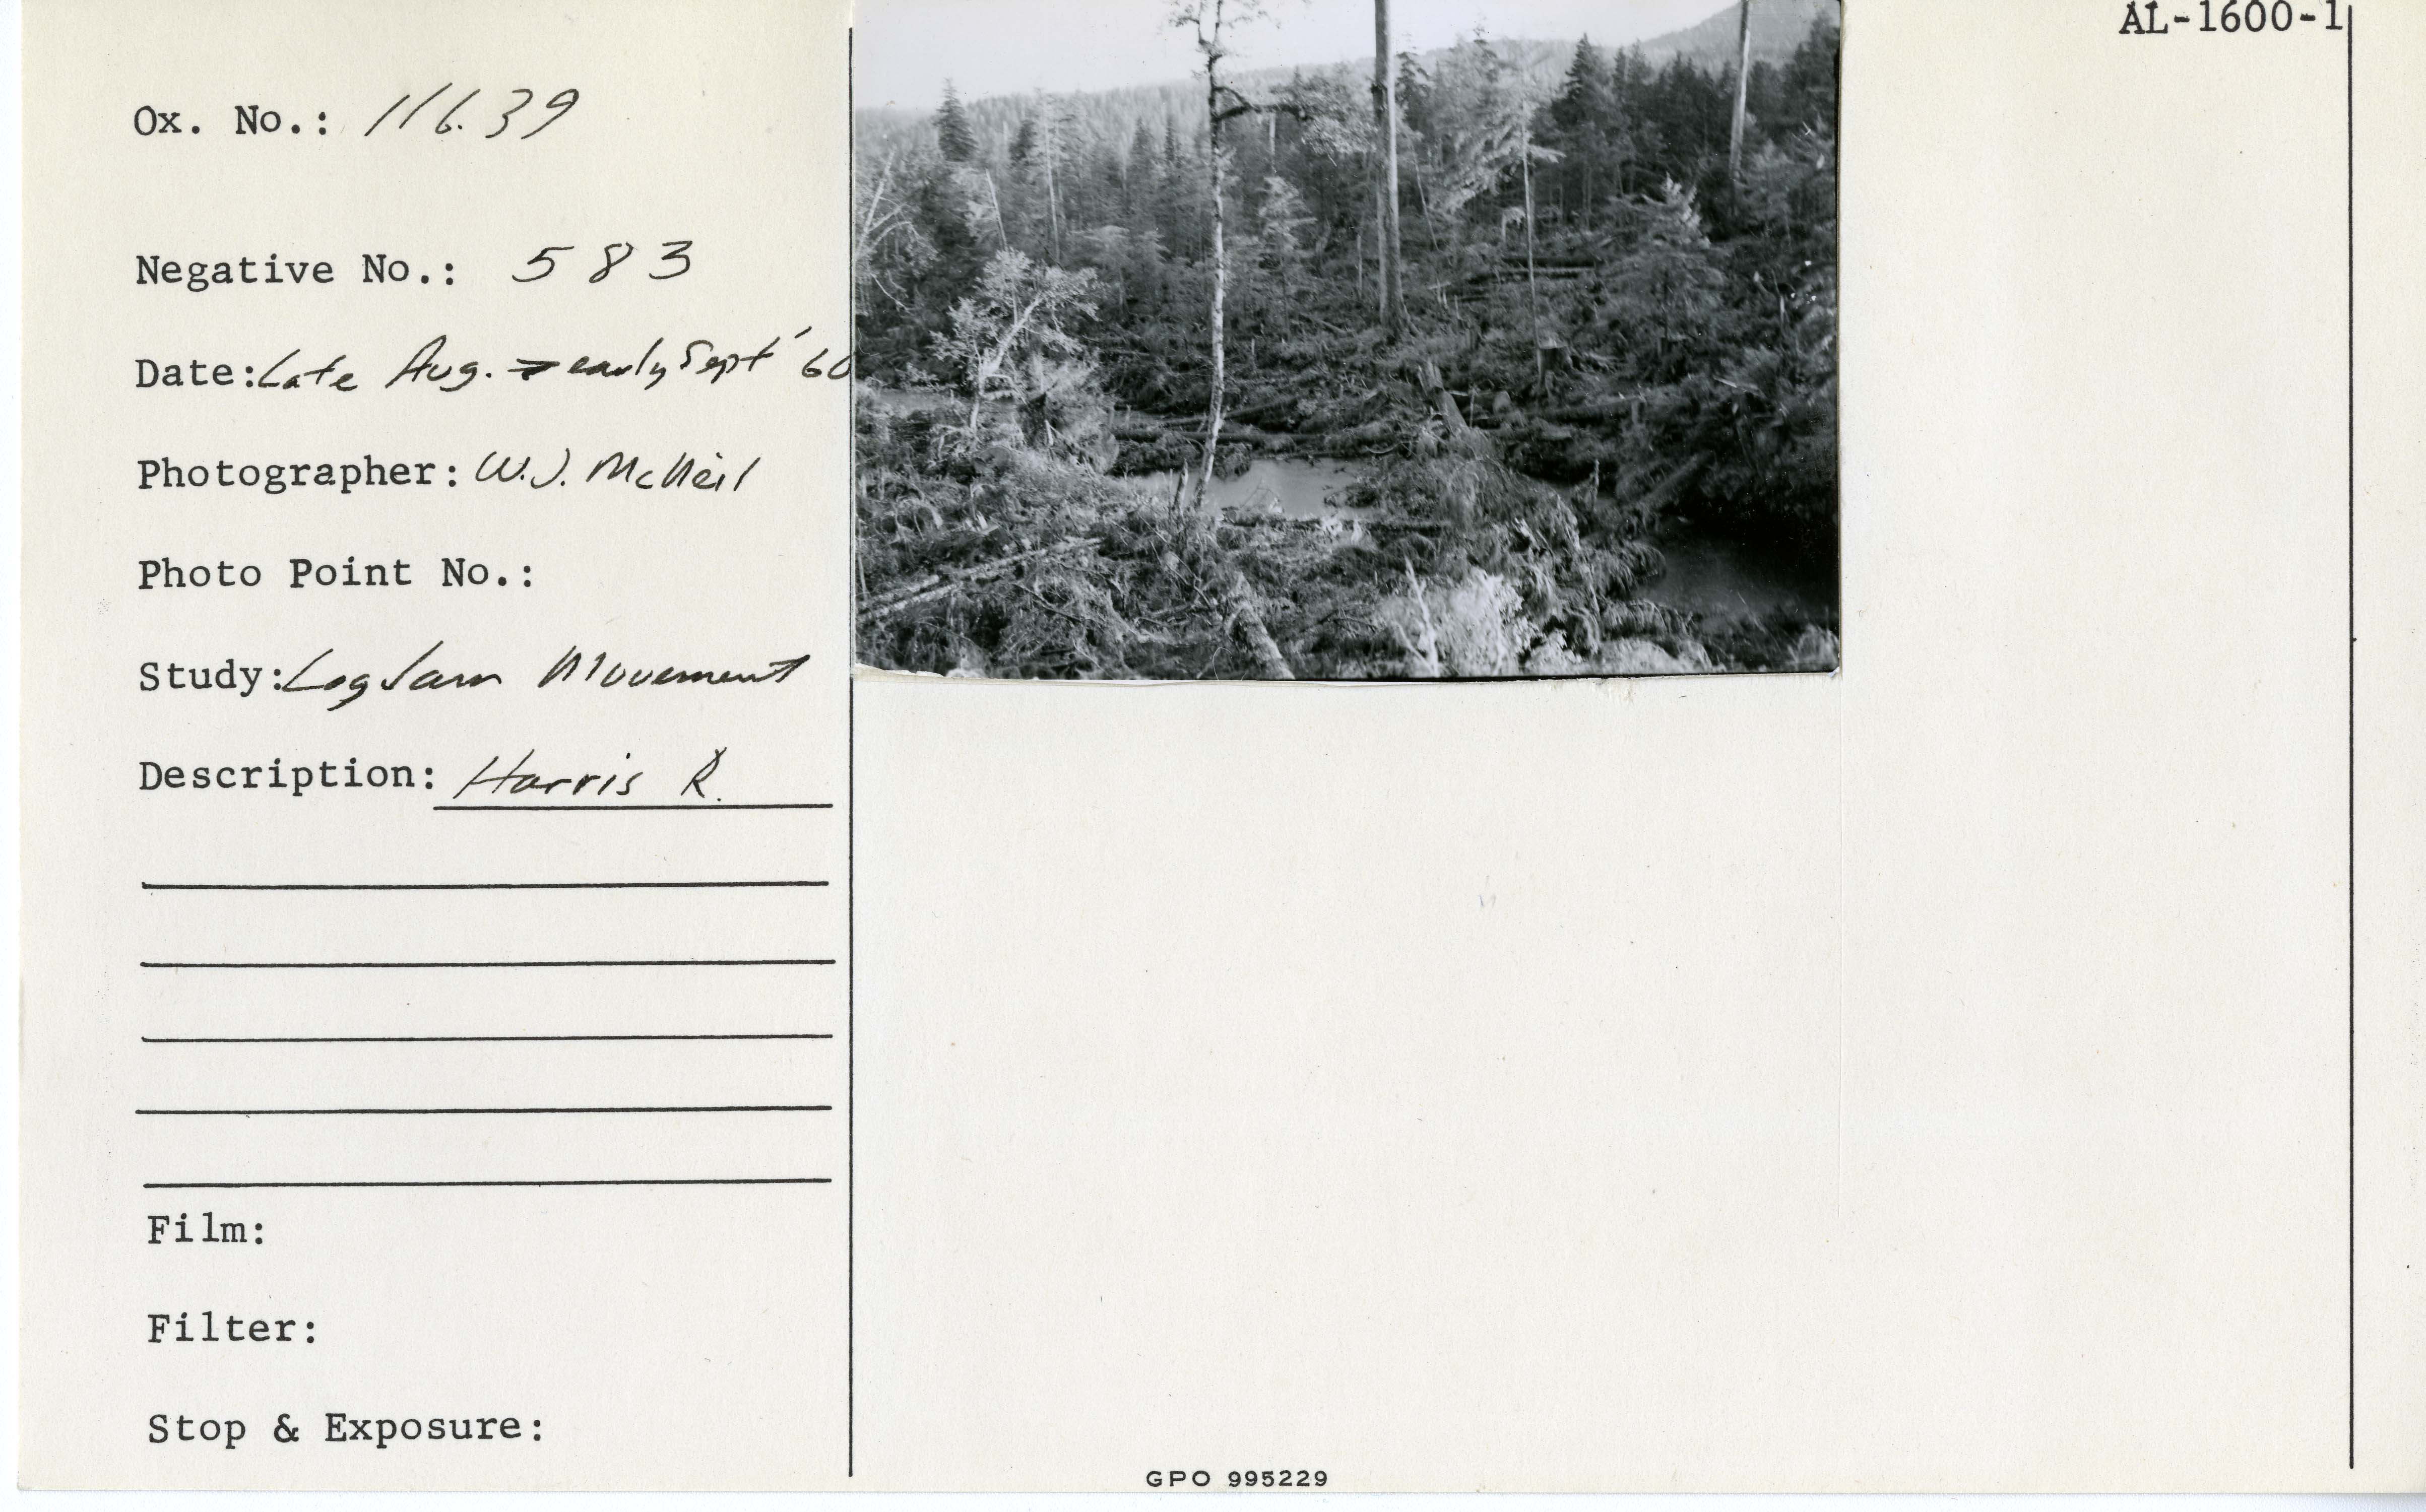 AL-1600-1
Ox. No.: 116.39
Negative No.: 583
Date: Late Aug. → early Sept '60
Photographer: W.J. McNeil
Photo Point No.:
Study: Log Jam Movement
Description: Harris R.
Film:
Filter:
Stop & Exposure:
GPO 995229